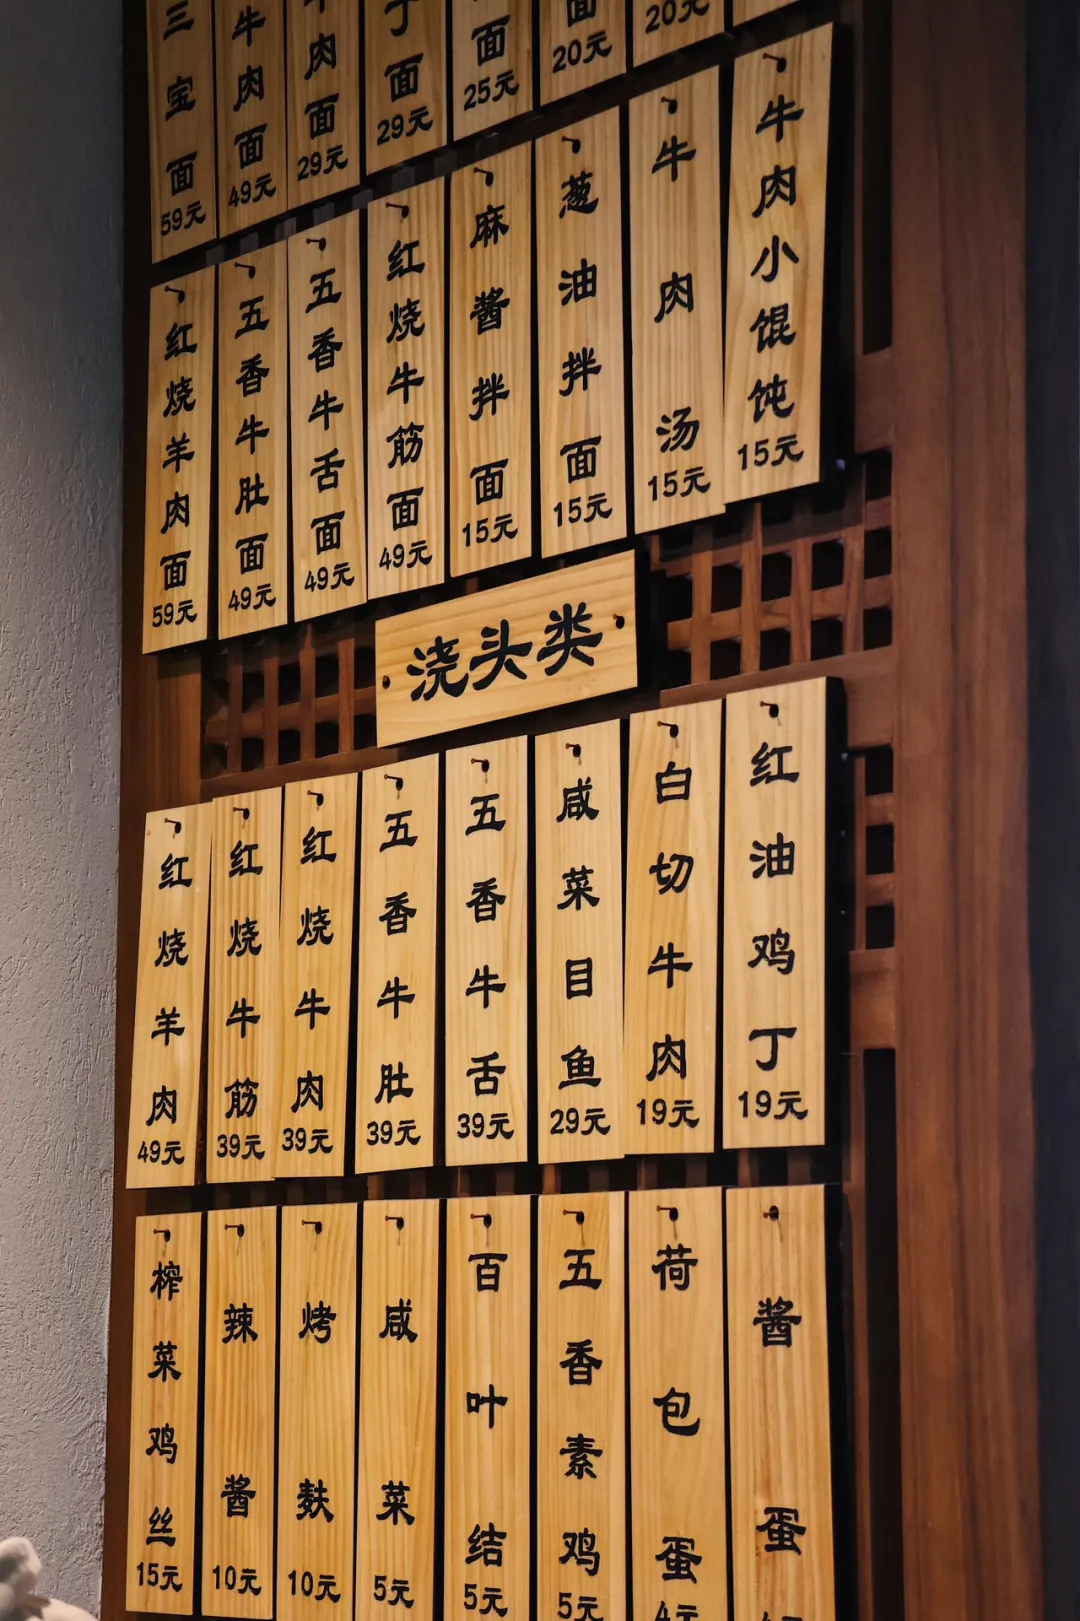 三宝面
59元
牛肉面
49元
牛肉面
29元
丁面
29元
面
25元
面
20元
20元
红烧羊肉面
59元
五香牛肚面
49元
五香牛舌面
49元
红烧牛筋面
49元
麻酱拌面
15元
葱油拌面
15元
牛肉汤
15元
牛肉小馄饨
15元
浇头类
红烧羊肉
49元
红烧牛筋
39元
红烧牛肉
39元
五香牛肚
39元
五香牛舌
39元
咸菜目鱼
29元
白切牛肉
19元
红油鸡丁
19元
榨菜鸡丝
15元
辣酱
10元
烤麸
10元
咸菜
5元
百叶结
5元
五香素鸡
5元
荷包蛋
4元
酱蛋